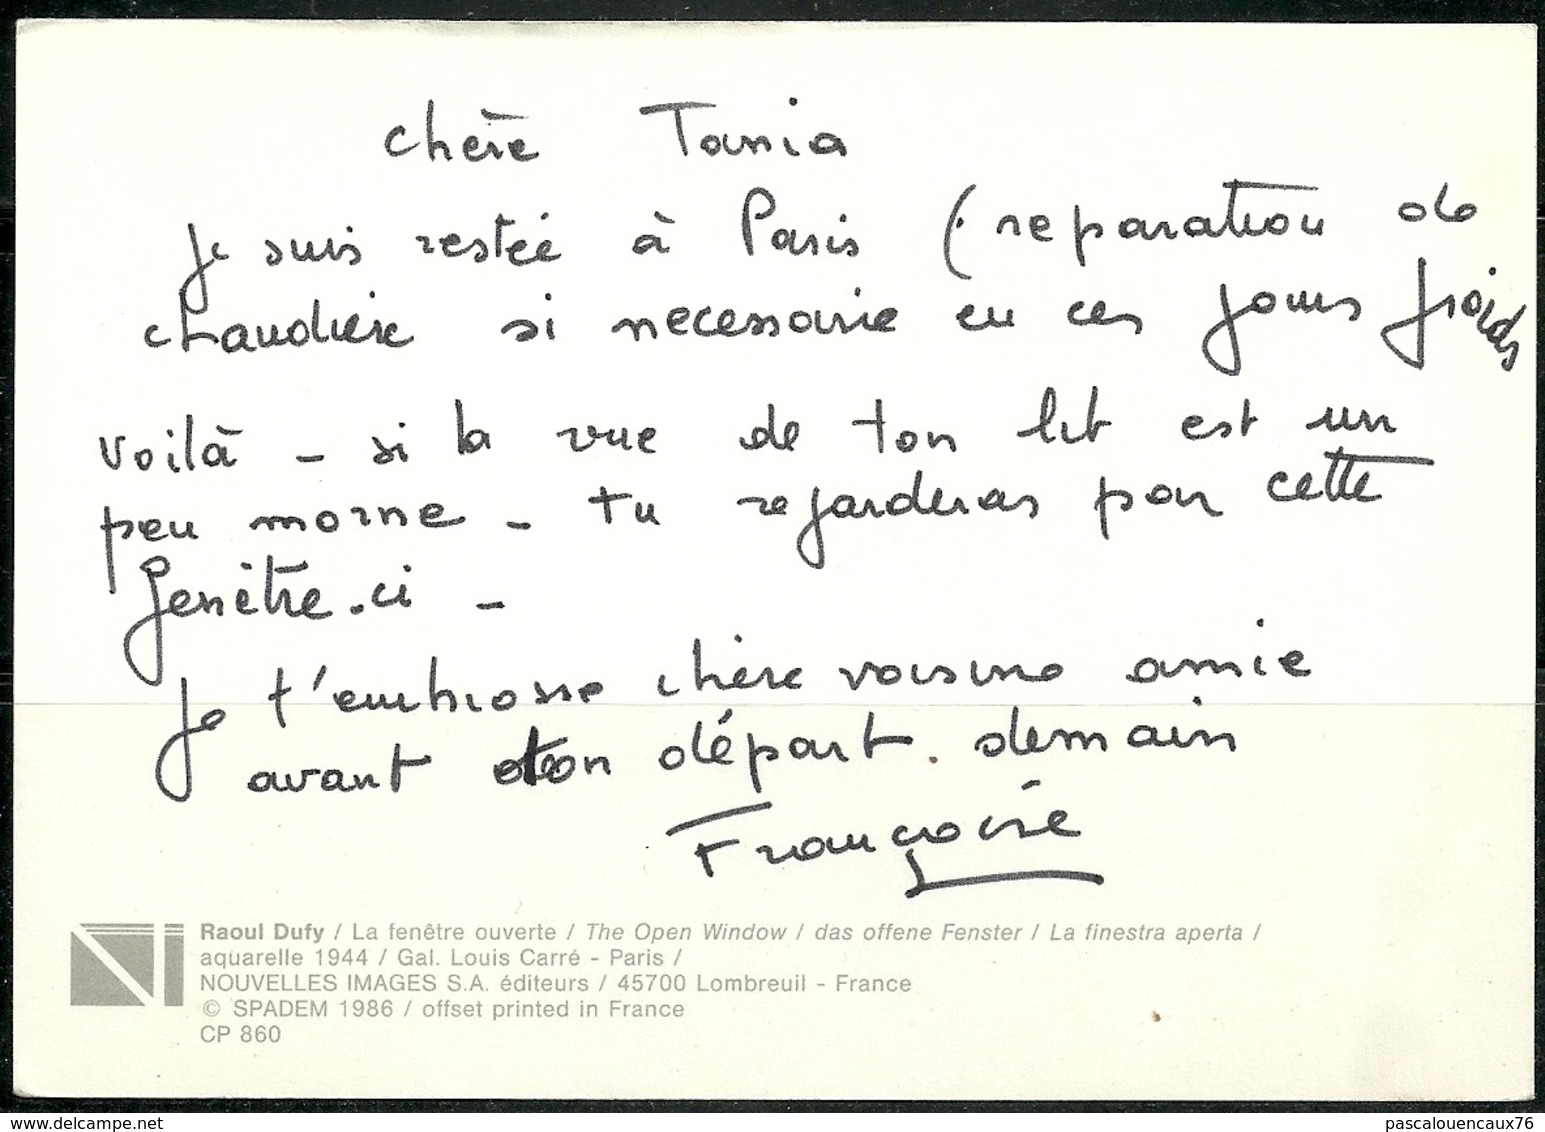 chère Tania
Je suis restée à Paris (reparation de
chaudière si necessaire en ces jours froids
voilà - si la vue de ton lit est un
peu morne - tu regarderas par cette
fenêtre-ci -
Je t'embrasse chère voisine amie
avant ton départ. demain
Françoise
Raoul Dufy / La fenêtre ouverte / The Open Window / das offene Fenster / La finestra aperta /
aquarelle 1944 / Gal. Louis Carré - Paris /
NOUVELLES IMAGES S.A. éditeurs / 45700 Lombreuil - France
© SPADEM 1986 / offset printed in France
CP 860
www.delcampe.net
pascalouencaux76